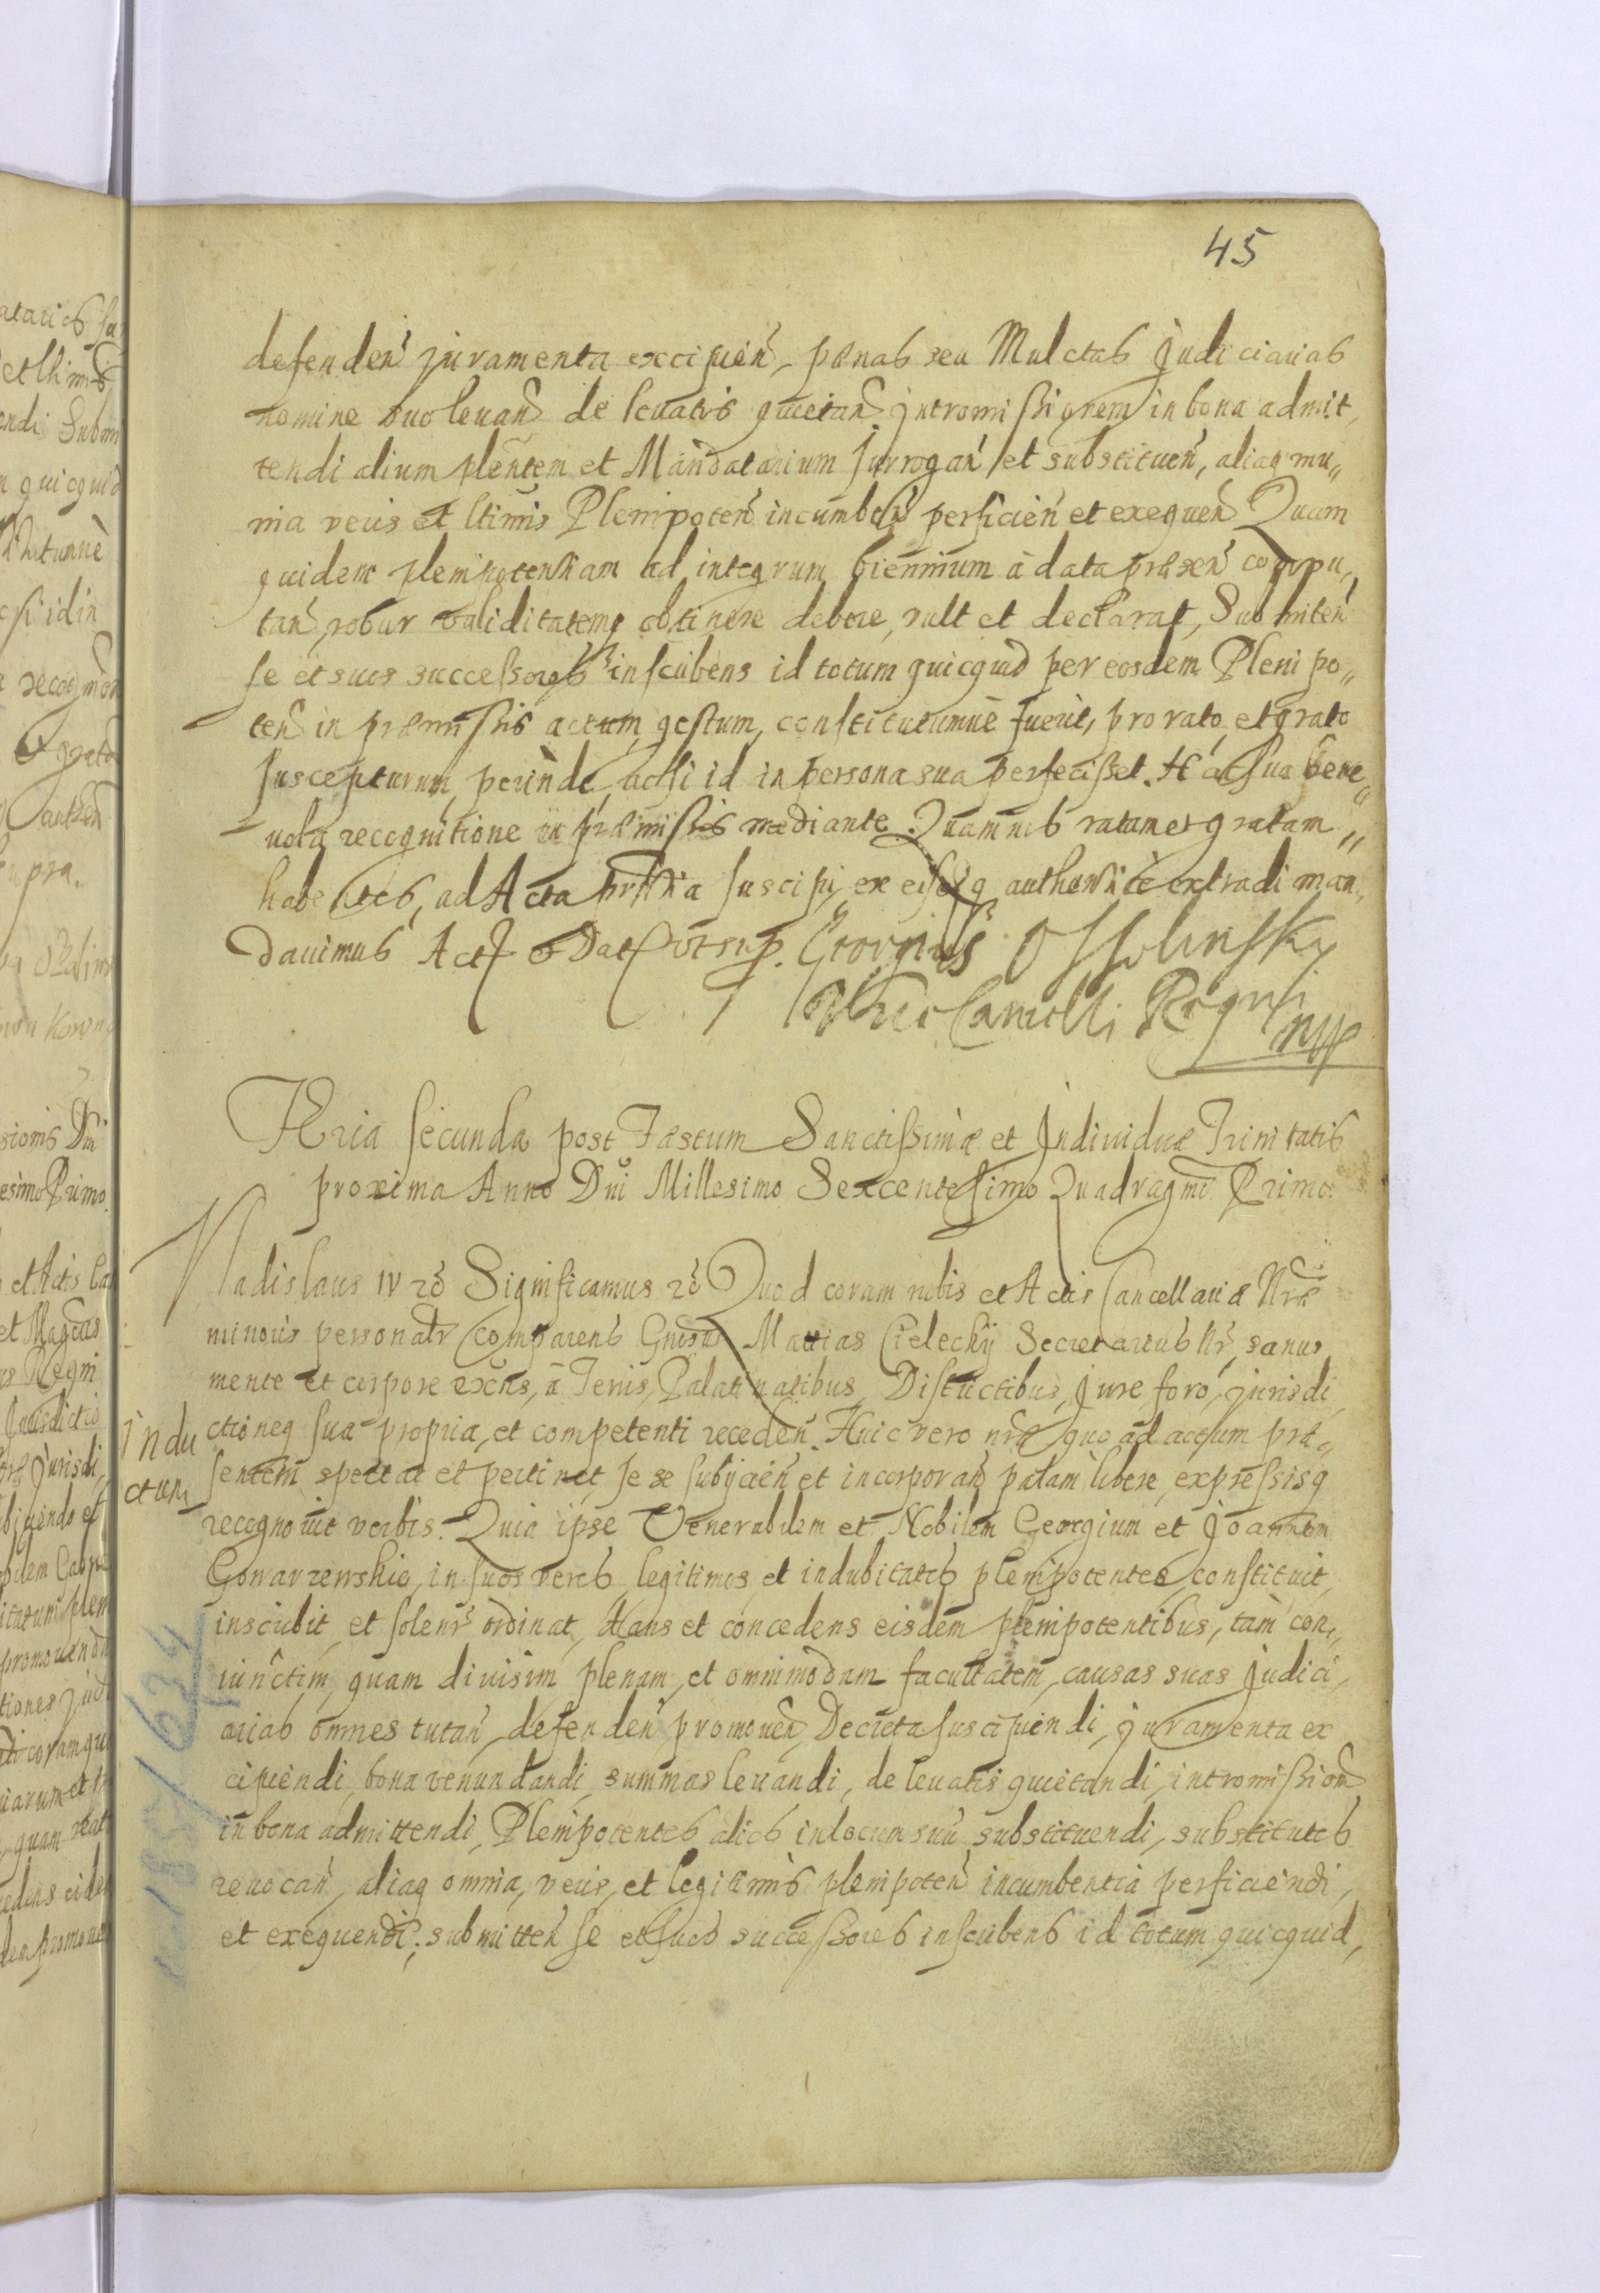 45
defenden juramenta excipien, pœnas seu Mulctas Judiciarias
nomine suo levan de levatis quietan intromissionem in bona admit,
tendi alium plentem et Mandatarium surrogan et substituen, aliaq mu„
nia veris et ltimis Plenipoten incumben perficien et exequen Quam
quidem plenipotentiam ad integrum biennium à data præsen compu„
tan, robur validitatemq obtinere debere, vult et declarat, Submiten
se et suos successores inscribens id totum quicquid per eosdem Plenipo„
ten in præmissis actum, gestum, constitutumuè fuerit, pro rato et grato
suscepturum, perindè, acsi id in persona sua perfecisset. Hac sua bene„
vola recognitione in præmissis mediante. Quam nos ratam et gratam „
habentes, ad Acta prntia suscipi, ex eisq authenticè extradi man„
davimus Act et Dat ut sup. Georgius Ossolinsky
Vice Cancell: Regni
mpp
FEria secunda post Fæstum Sanctissimæ et Individuæ Trinitatis
proxima Anno Dni Millesimo Sexcentesimo Quadragmo Primo.
Vladislaus IV etc Significamus etc Quod coram nobis et Actis Cancellariæ Nræ
minoris personatr comparens Gnosus Mattias Cielecky Secretarius Nr, sanus
mente et corpore exns, à Terris, Palatinatibus, Districtibus, Jure foro, jurisdi
ctioneq sua propria, et competenti receden. Huic vero nræ quo ad actum præ„
sentem spectat et pertinet, se se subijcien et incorporan palam libere, expressisq
recognovit verbis. Quia ipse Venerabilem et Nobilem Georgium et Joannem
Gowarzewskie, in suos veros legitimos et indubitatos plenipotentes constituit,
inscribit, et solenr ordinat, dans et concedens eisdem plenipotentibus, tam con„
iunctim, quam divisim plenam, et omnimodam facultatem, causas suas Judici„
arias omnes tutan, defenden, promoven, Decreta suscipiendi, juramenta ex
cipiendi, bona venundandi, summas levandi, de levatis quietandi, intromission
in bona admittendi, Plenipotentes alios in locum suu substituendi, substitutos
revocan, aliaq omnia, veris, et legitimis plenipoten incumbentia perficiendi,
et exequendi; submitten se et suos successores inscribens id totum quicquid,
Indu
ctum